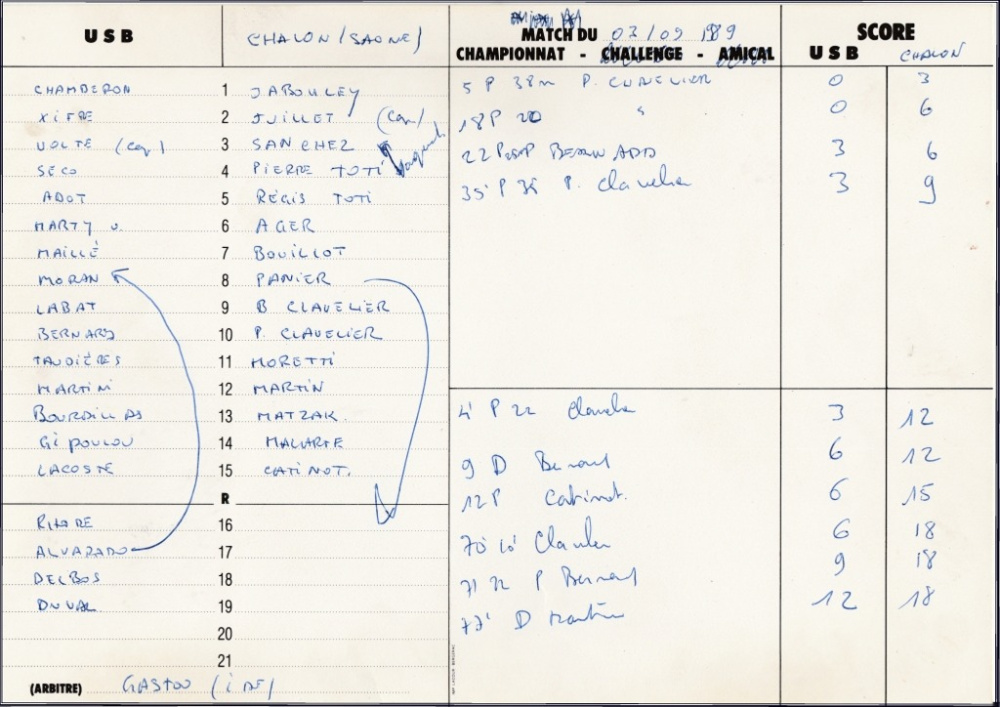 USB CHALON (SAONE)
MATCH DU 03/09 1989
CHAMPIONNAT - CHALLENGE - AMICAL
SCORE
USB CHALON
CHAMDERON 1 JABOULEY
XIFRE 2 JUILLET (cap)
VOLTE (cap) 3 SANCHEZ
SECO 4 PIERRE TOTI
ADOT 5 REGIS TOTI
MARTY J. 6 AGER
MAILLÉ 7 BOUILLOT
MORAN 8 PANIER
LABAT 9 B CLAVELIER
BERNARD 10 P. CLAVELIER
TAUDIÈRES 11 MORETTI
MARTINI 12 MARTIN
BOURDILLAS 13 MATZAK.
GIPOULOU 14 MALARTE
LACOSTE 15 CATINOT.
R
16
ALVARADO 17
DELBOS 18
DUVAL 19
20
21
(ARBITRE) GASTOU (IDF)
5 P 38m P. CLAVELIER 0 3
18 P 20 " 0 6
22 P BERNARD 3 6
35' P 35 P. Clavelier 3 9
4' P 22 Clavelier 3 12
9 D Bernard 6 12
12 P Catinot. 6 15
70 Clavelier 6 18
71 22 P Bernard 9 18
77' D Martin 12 18